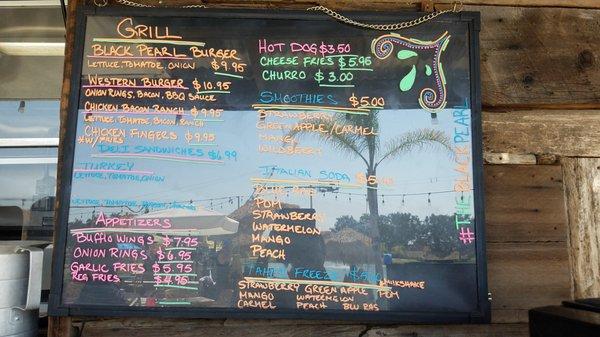 Grill
Black Pearl Burger
Lettuce, Tomatoe, Onion $9.95
Western Burger $10.95
Onion Rings, Bacon, BBQ Sauce
Chicken Bacon Ranch $9.95
Lettuce, Tomatoe, Bacon, Ranch
Chicken Fingers $9.95
*w/Fries
Deli Sandwiches $6.99
Turkey
Lettuce, Tomato, Onion
Lettuce, Tomato, Bacon
Appetizers
Bufflo Wings $7.95
Onion Rings $6.95
Garlic Fries $5.95
Reg Fries $4.95
Hot Dog $3.50
Cheese Fries $5.95
Churro $3.00
Smoothies $5.00
Strawberry
Green Apple/Carmel
Mango
Wildberry
Italian Soda
Blue Ras
Pom
Strawberry
Watermelon
Mango
Peach
Tahiti Freeze
Strawberry Green Apple Milkshake
Mango Watermelon Pom
Carmel Peach Blu Ras
#THEBLACKPEARL